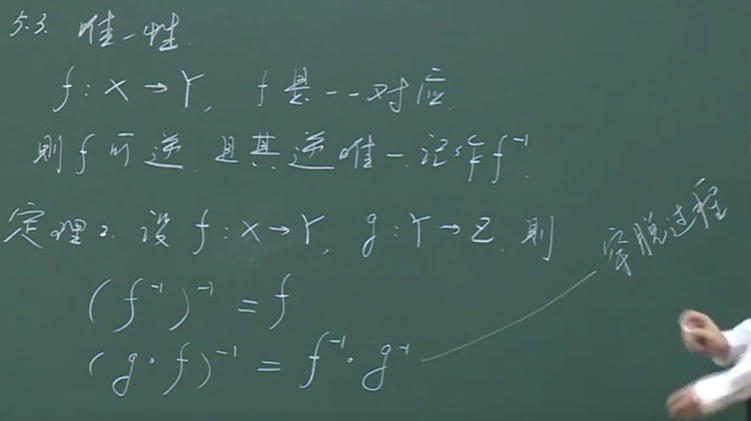 5.3. 唯一性.
f: X→Y, f是一一对应.
则f可逆.且其逆唯一.记作f⁻¹.
定理2. 设 f: X→Y, g: Y→Z. 则
(f⁻¹)⁻¹ = f
(g·f)⁻¹ = f⁻¹·g⁻¹
穿脱过程